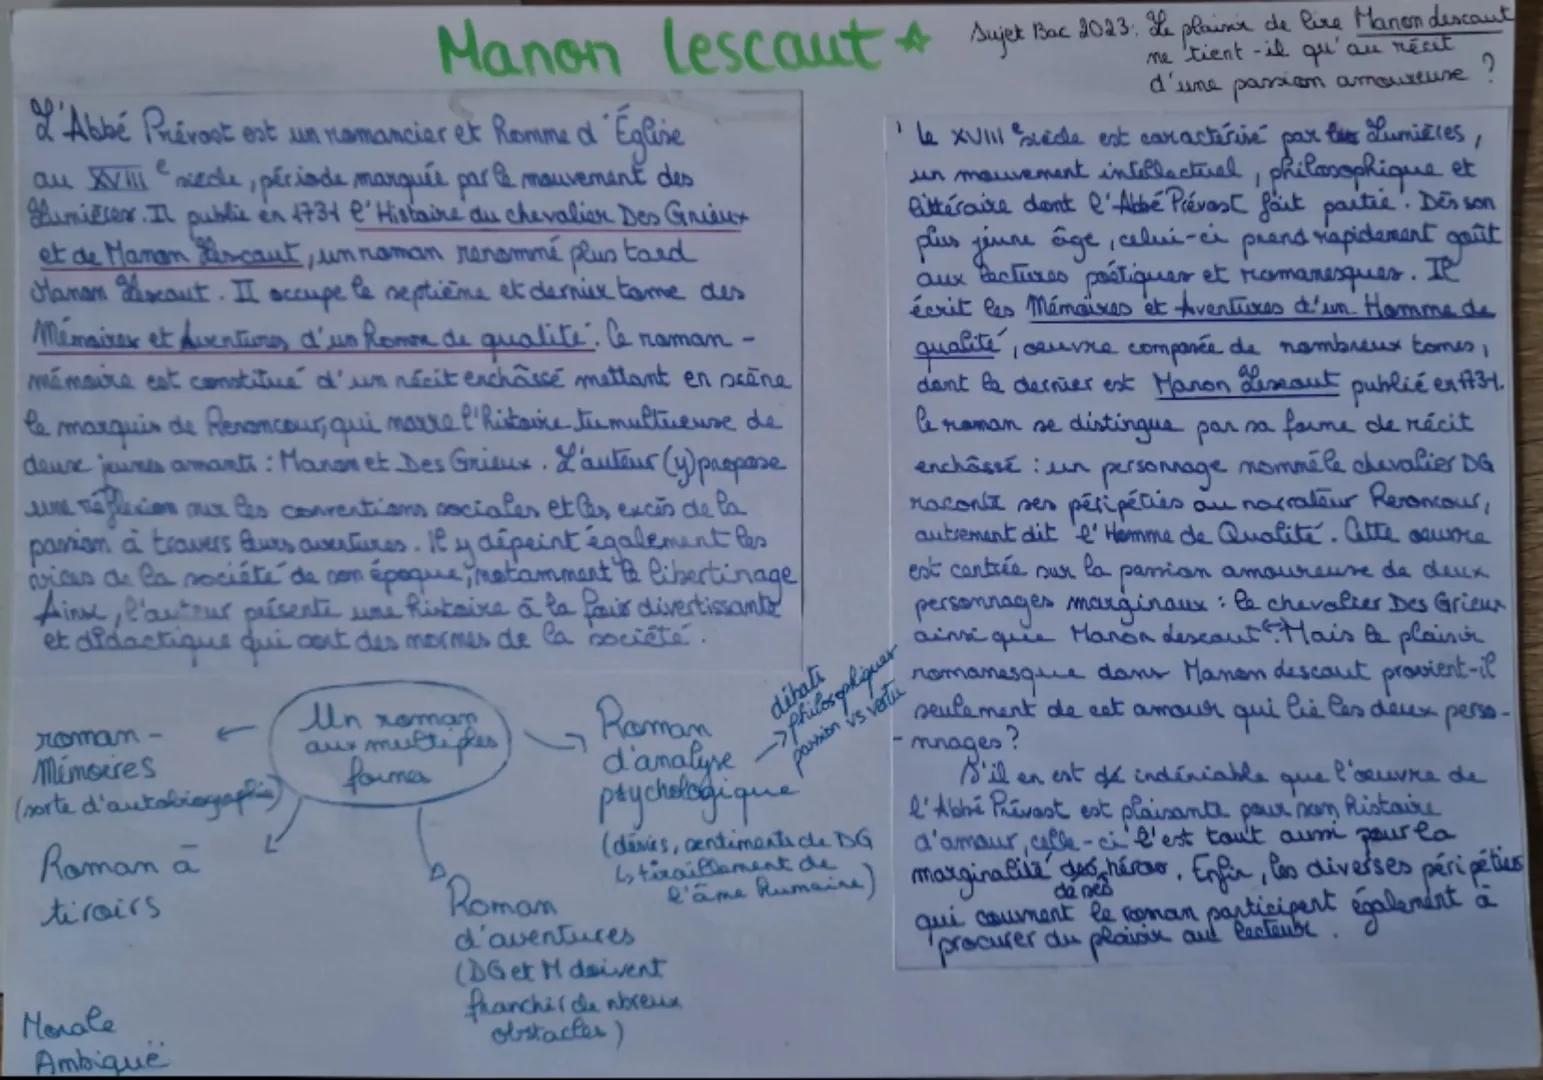 Manon lescaut ☆
Sujet Bac 2023: Le plaisir de lire Manon Lescaut
ne tient-il qu'au récit
d'une passion amoureuse ?
L'Abbé Prévost est un romancier et homme d'Église
au XVIIIe siècle, période marquée par le mouvement des
Lumières. Il publie en 1731 l'Histoire du chevalier Des Grieux
et de Manon Lescaut, un roman renommé plus tard
Manon Lescaut. Il occupe le septième et dernier tome des
Mémoires et Aventures d'un homme de qualité. Ce roman-
mémoire est constitué d'un récit enchâssé mettant en scène
le marquis de Renoncour, qui narre l'histoire tumultueuse de
deux jeunes amants : Manon et Des Grieux. L'auteur (y) propose
une réflexion sur les conventions sociales et les excès de la
passion à travers leurs aventures. Il y dépeint également les
vices de la société de son époque, notamment le libertinage
Ainsi, l'auteur présente une histoire à la fois divertissante
et didactique qui sort des normes de la société.
Un roman
aux multiples
formes
roman-
Mémoires
(sorte d'autobiographie)
Roman à
tiroirs
Roman
d'aventures
(DG et M doivent
franchir de nbreux
obstacles)
Roman
d'analyse
psychologique
(désirs, sentiments de DG
↳ tiraillement de
l'âme humaine)
débats
philosophiques
passion vs vertu
Morale
Ambiguë
Le XVIIIe siècle est caractérisé par les Lumières,
un mouvement intellectuel, philosophique et
littéraire dont l'Abbé Prévost fait partie. Dès son
plus jeune âge, celui-ci prend rapidement goût
aux lectures poétiques et romanesques. Il
écrit les Mémoires et Aventures d'un Homme de
qualité, œuvre composée de nombreux tomes,
dont le dernier est Manon Lescaut publié en 1731.
Ce roman se distingue par sa forme de récit
enchâssé : un personnage nommé le chevalier DG
raconte ses péripéties au narrateur Renoncour,
autrement dit l'Homme de Qualité. Cette œuvre
est centrée sur la passion amoureuse de deux
personnages marginaux : le chevalier Des Grieux
ainsi que Manon Lescaut. Mais le plaisir
romanesque dans Manon Lescaut provient-il
seulement de cet amour qui lie les deux perso-
-nnages ?
S'il en est indéniable que l'œuvre de
l'Abbé Prévost est plaisante pour son histoire
d'amour, celle-ci l'est tout aussi pour la
marginalité de ses héros. Enfin, les diverses péripéties
qui couvrent le roman participent également à
procurer du plaisir au lecteur.